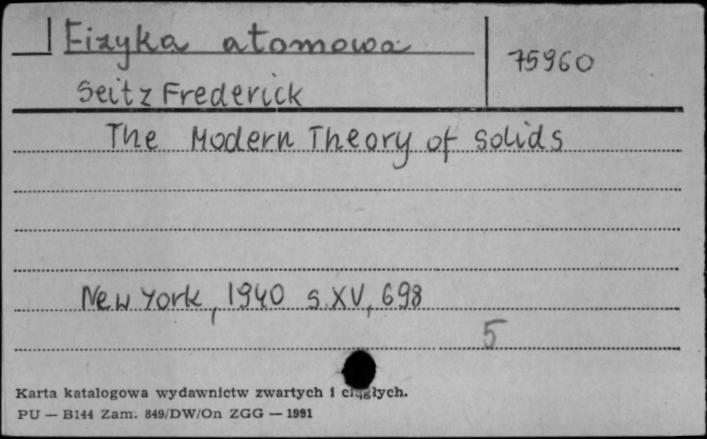 Fizyka atomowa
75960
Seitz Frederick
The Modern Theory of Solids
New York, 1940 s. XV, 698
5
Karta katalogowa wydawnictw zwartych i ciągłych.
PU — B144 Zam. 849/DW/On ZGG — 1991